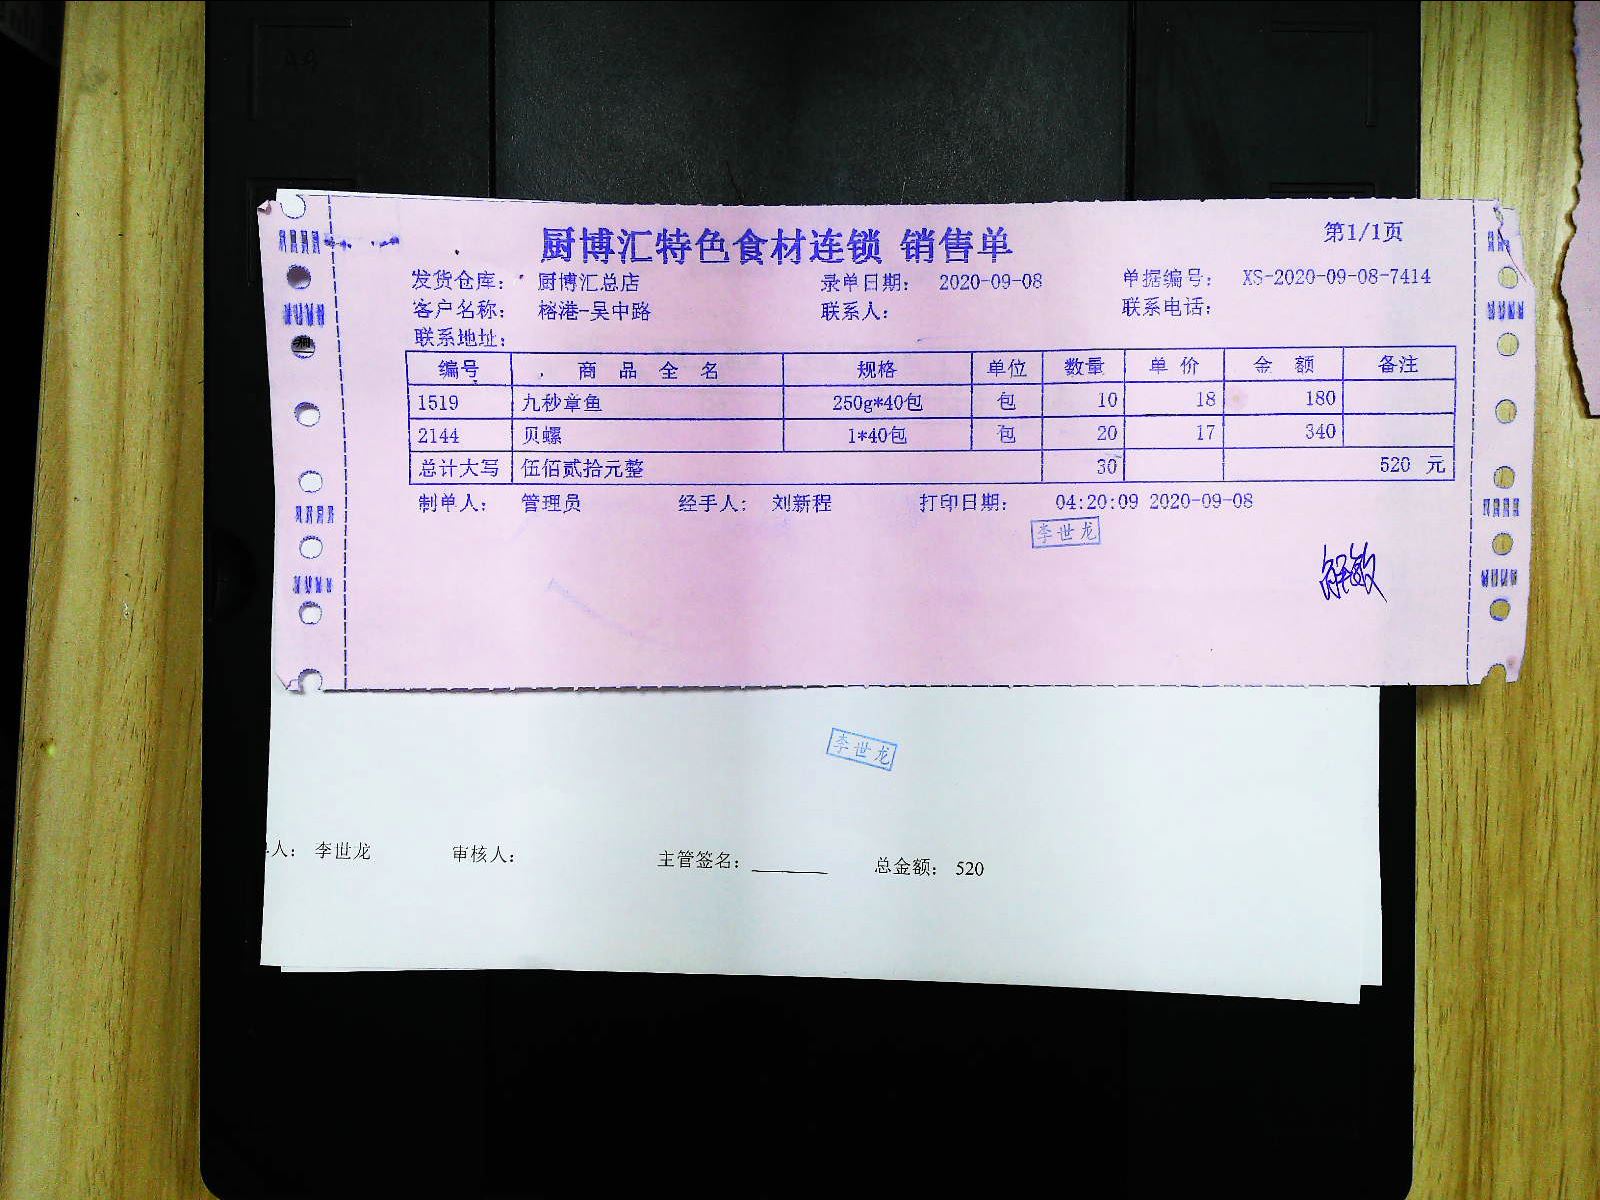 厨博汇特色食材连锁 销售单 第1/1页
发货仓库： 厨博汇总店 录单日期： 2020-09-08 单据编号： XS-2020-09-08-7414
客户名称： 榕港-吴中路 联系人： 联系电话：
联系地址：
编号 商品全名 规格 单位 数量 单价 金额 备注
1519 九秒章鱼 250g*40包 包 10 18 180
2144 贝螺 1*40包 包 20 17 340
总计大写 伍佰贰拾元整 30 520 元
制单人： 管理员 经手人： 刘新程 打印日期： 04:20:09 2020-09-08
李世龙
李世龙
人： 李世龙 审核人： 主管签名： 总金额： 520